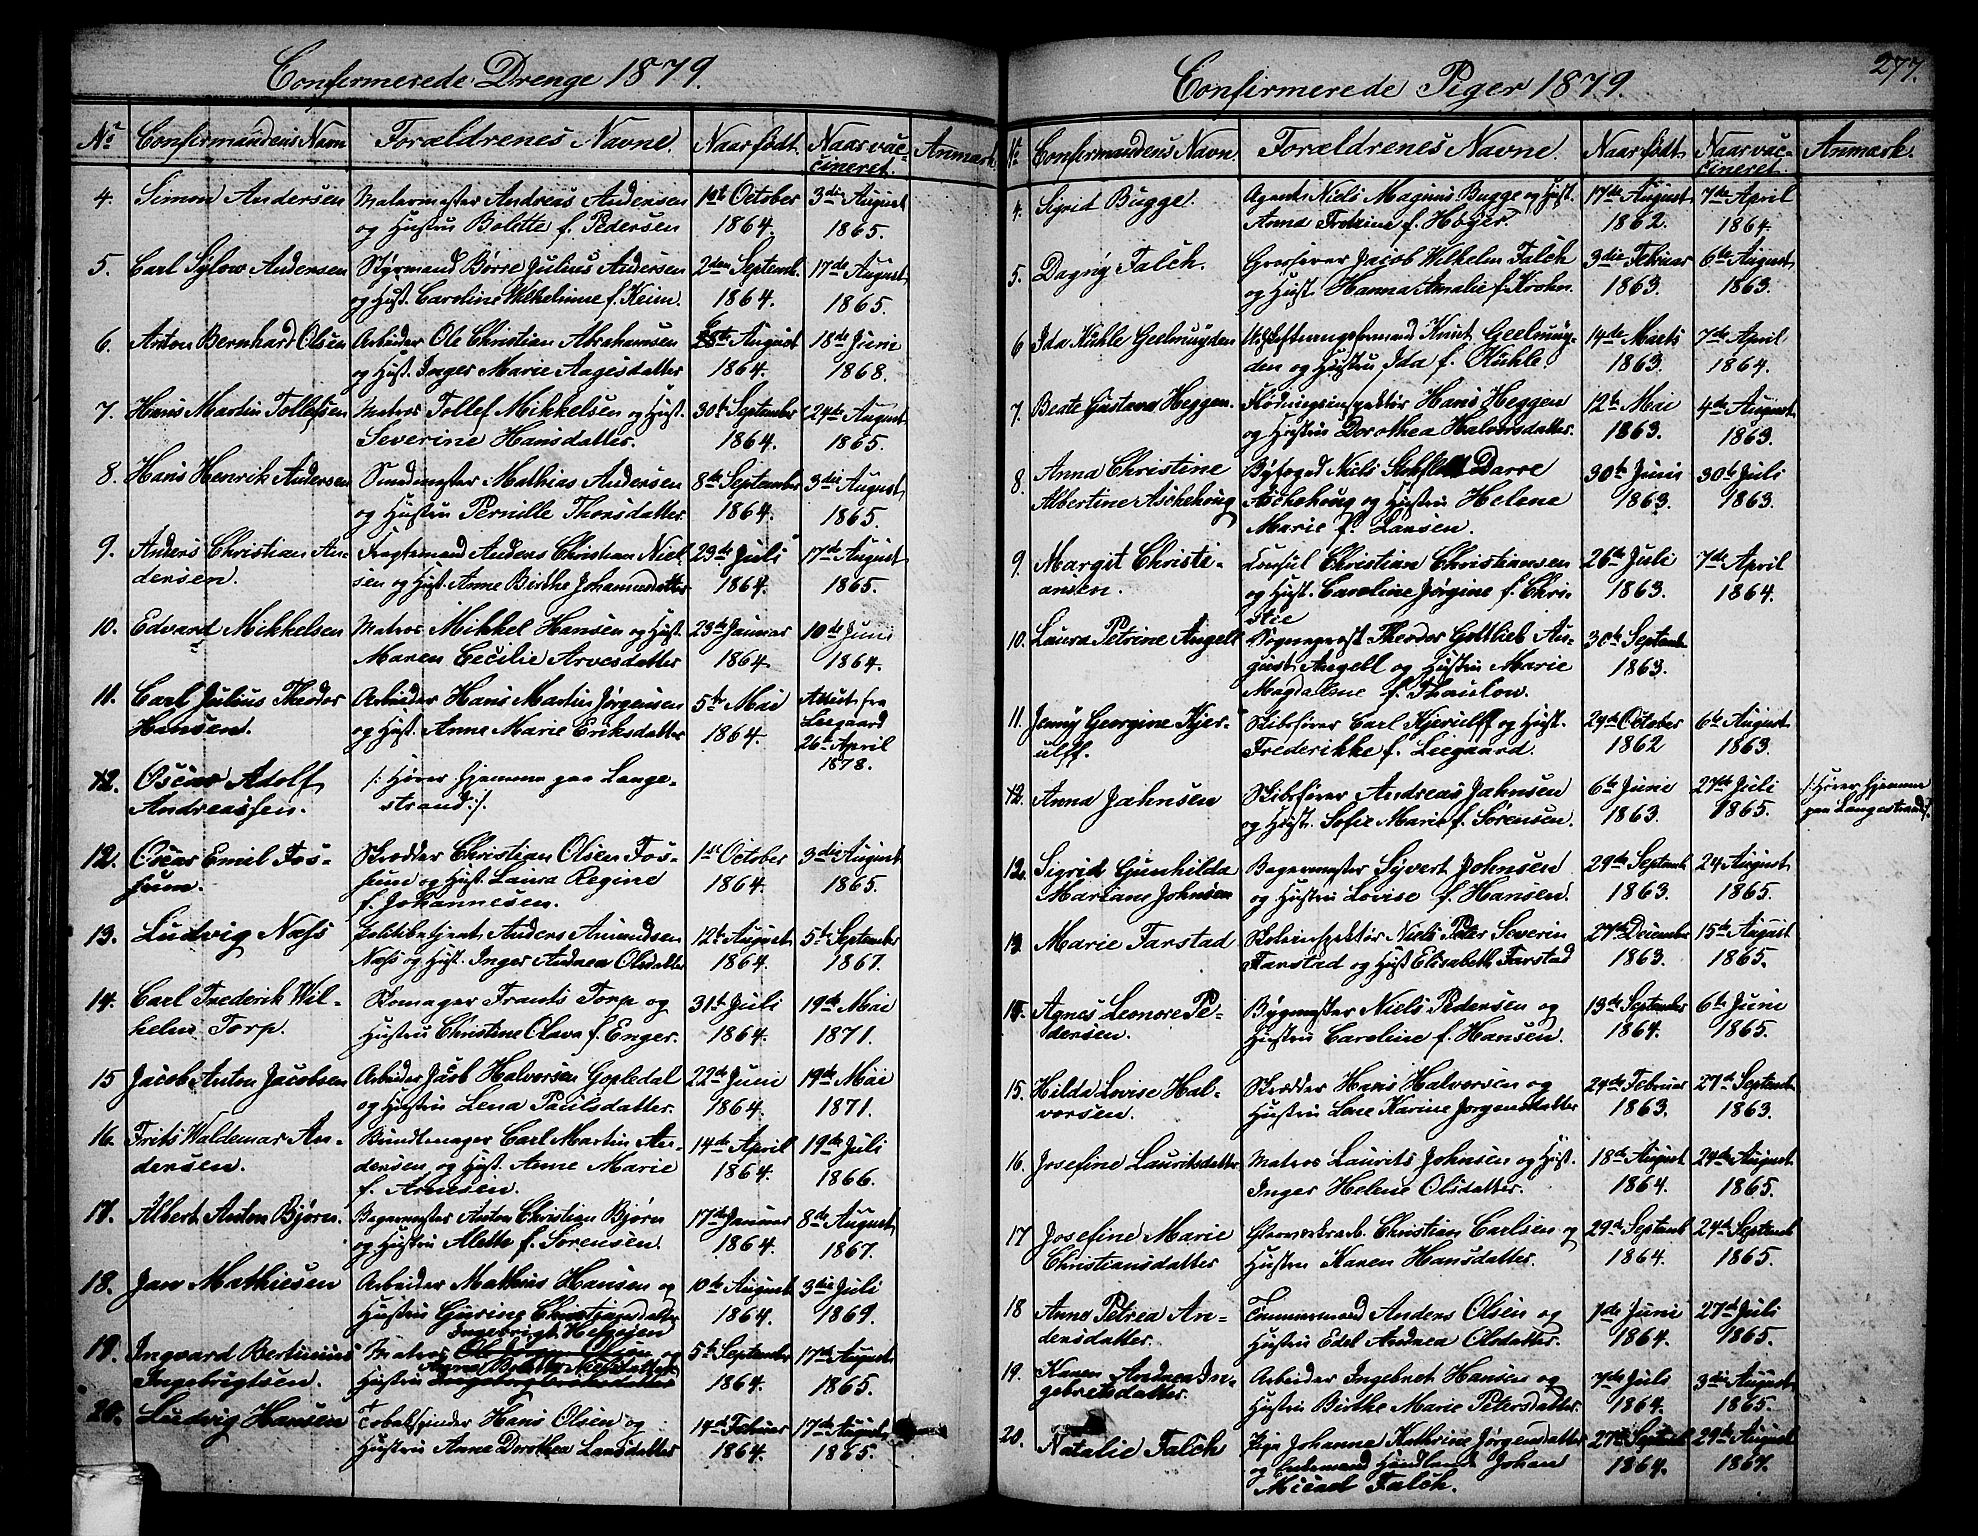 Confirmerede Drenge 1879.
No Confirmandens Navn Forældrenes Navne. Naar født. Naar vac- Anmærk.
cineret.
4. Simon Andersen Andreas Andersen 1st October 3die August
og Hustru Bolette f. Pedersen 1864. 1865.
5. Carl Sylow Andersen Styrmand Børre Julius Andersen 2den Septemb. 17de August
og Hust. Caroline Wilhelmine f. Keim. 1864. 1865.
6. Anton Bernhard Olsen Arbeider Ole Christian Abrahamsen August 18de Juni
og Hust. Inger Marie Aagesdatter 1864. 1868.
7. Hans Martin Tollefsen Matros Tollef Mikkelsen og Hust. 30te September 24de August
Severine Hansdatter. 1864. 1865.
8. Hans Henrik Andersen Mathias Andersen 8de September 3die August
og Hustru Pernille Thorsdatter. 1864. 1865.
9. Anders Christian An- Fragtemand Anders Christian Niel- 23de Juli 17de August
dersen. sen og Hust. Anne Birthe Johannesdatter 1864. 1865.
10. Edvard Mikkelsen Matros Mikkel Hansen og Hust. 23de Januar 10de Juni
Maren Cecilie Arvesdatter 1864. 1864.
11. Carl Julius Theodor Arbeider Hans Martin Jørgensen 5te Mai Attest fra
Hansen. og Hust. Anne Marie Eriksdatter 1864. Leegaard
26de April
1878.
12. Oscar Adolf /: Hører hjemme paa Lange-
Andreassen. strand :/.
12. Oscar Emil Fos- Skrædder Christian Olsen Fos- 1st October 3die August
sum. sum og Hust. Laura Regine 1864. 1865.
f. Johannesen.
13. Ludvig Næss Politibetjent Anders Amundsen 12te August 5te September
Næss og Hust. Inger Andrea Olsdatter 1864. 1867.
14. Carl Frederik Wil- Skomager Frants Torp og 31te Juli 19de Mai
helm Torp. Hustru Christine Olava f. Enger. 1864. 1871.
15 Jacob Anton Jacobsen Arbeider Jacob Halvorsen Gopledal 22de Juni 19de Mai
og Hustru Lena Paulsdatter. 1864. 1871.
16. Frits Waldemar An- Bundtmager Carl Martin An- 14de April 19de Juli
dersen. dersen og Hust. Anne Marie 1864. 1866.
f. Arnesen.
17. Albert Anton Bjørn. Bagermester Anton Christian Bjørn 17de Januar 8de August
og Hustru Alette f. Sørensen. 1864. 1867.
18. Jan Mathiesen Arbeider Mathias Hansen og 10de August 3die Juli
Hustru Gurine Christiansdatter 1864. 1869.
Ingebrigt Helgesen
19. Ingvard Bertinius Matros Ole Olsen og 5te September 17de August
Ingebrigtsen. Hustru 1864. 1865.
20. Ludvig Hansen Tobakspinder Hans Olsen og 14de Februar 17de August
Hustru Anne Dorothea Larsdatter 1864. 1865.
277.
Confirmerede Piger 1879.
No Confirmandens Navn. Forældrenes Navne. Naar født. Naar vac- Anmærk.
cineret.
4. Sigrid Bugge. Agent Niels Magnus Bugge og Hust. 17de August 7de April
Anna f. Høyer. 1862. 1864.
5. Dagny Falch. Grosserer Jacob Wilhelm Falch 3die Februar 6te August
og Hust. Hanna Amalie f. Krohn. 1863. 1863.
6 Ida Kühle Geelmuyden Udskiftningsformand Knut Geelmuy- 14de Marts 7de April
den og Hustru Ida f. Kühle. 1863. 1864.
7. Beate Gustava Heggen. Flødningsinspektør Hans Heggen 12te Mai 4de August
og Hustru Dorothea Halvorsdatter. 1863. 1863.
8. Anna Christine Byfoged Niels Darre 30te Juni 30te Juli
Albertine Aschehoug Aschehoug og Hustru Helene 1863. 1863.
Marie f. Larsen.
9. Margit Christi- Consul Christian Christiansen 26de Juli 7de April
ansen. og Hust. Caroline Jørgine f. Chri- 1863. 1864.
stie
10. Laura Petrine Angell Sogneprest Theodor Gottlieb Au- 30te Septemb
gust Angell og Hustru Marie 1863.
Magdalene f. Thaulow.
11. Jenny Georgine Kjer- Skibsfører Carl Kjerulff og Hust. 24de October 6te August
ulff. Frederikke f. Leegaard. 1862 1863.
12. Anna Jahnsen Skibsfører Andreas Jahnsen 6te Juni 27de Juli /: Hører hjemme
og Hust. Sofie Marie f. Sørensen. 1863. 1865. paa Langestrand :/.
12. Sigrid Gunhilda Bagermester Syvert Johnsen 29de Septemb 24 August
Mariane Johnsen og Hustru Lovise f. Hansen. 1863. 1865.
13 Marie Farstad Skoleinspektør Niels Peter Severin 27de December 15de August
Farstad og Hust Elisabeth Farstad 1863. 1865.
14. Agnes Leonore Pe- Bygmester Niels Pedersen og 13de September 6te Juni
dersen. Hustru Caroline f. Hansen. 1864. 1865.
15. Hilda Lovise Hal- Skrædder Hans Halvorsen og 24de Februar 27de Septemb
vorsen. Hustru Lone Karine Jørgensdatter 1863. 1863.
16. Josefine Lauritsdatter Matros Laurits Johnsen og Hust. 18de August 24de August
Inger Helene Olsdatter. 1864. 1865.
17 Josefine Marie Glasværksarb. Christian Carlsen og 29de Septemb 24de Septemb
Christiansdatter Hustru Karen Hansdatter. 1864. 1865.
18 Anne Petrea An- Tømmermand Anders Olsen og 7de Juni 27de Juli
dersdatter. Hustru Edel Andrea Olsdatter. 1864. 1865.
19. Karen Andrea In- Arbeider Ingebret Hansen og 7de Juli 3die August
gebretsdatter. Hustru Birthe Marie Petersdatter. 1864. 1865.
20. Natalie Falch Pige Johanne Kathrine Jørgensdatter 27de Septemb 29de August
og Enkemand Johan 1864. 1867.
Michael Falch.